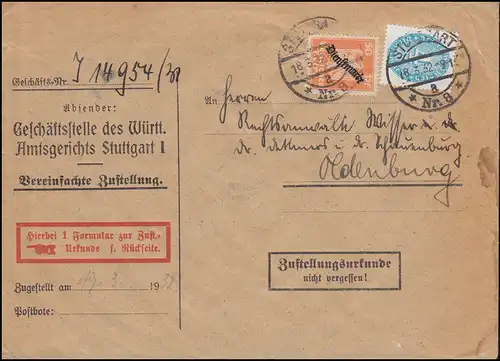 Geschäfts-Nr. J 14954/32
Absender:
Geschäftsstelle des Württ.
Amtsgerichts Stuttgart I
Vereinfachte Zustellung.
Hierbei 1 Formular zur Zust.-
Urkunde s. Rückseite.
Zugestellt am 19
Postbote:
Dienstmarke
STUTTGART
18.5.32
a
* Nr. 8 *
STUTTGART
18.5.32
a
* Nr. 8 *
An Herren
Rechtsanwälte Wisser
dr. dettmers u. dr. Schauenburg
Oldenburg
Zustellungsurkunde
nicht vergessen!